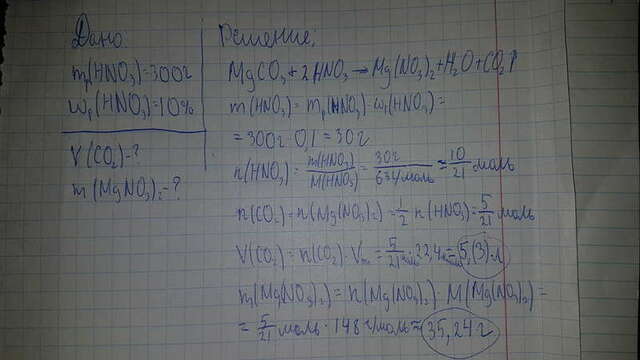 Дано
mр(HNO₃)=300г
wр(HNO₃)=10%
V(CO₂)=?
m(MgNO₃)₂=?
Решение:
MgCO₃+2HNO₃→Mg(NO₃)₂+H₂O+CO₂↑
m(HNO₃)=mр(HNO₃)·wр(HNO₃)=
=300г·0,1=30г
n(HNO₃)=m(HNO₃)/M(HNO₃)=30г/63г/моль≈10/21моль
n(CO₂)=n(Mg(NO₃)₂)=1/2 n(HNO₃)=5/21моль
V(CO₂)=n(CO₂)·Vm=5/21·22,4=5,(3)л
m(Mg(NO₃)₂)=n(Mg(NO₃)₂)·M(Mg(NO₃)₂)=
=5/21моль·148г/моль≈35,24г